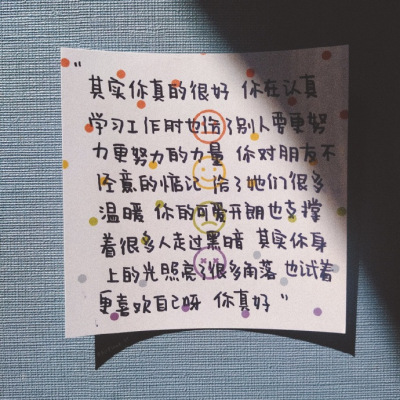 "
其实你真的很好 你在认真
学习工作时也给了别人要更努
力更努力的力量 你对朋友不
经意的惦记 给了她们很多
温暖 你的可爱开朗也支撑
着很多人走过黑暗 其实你身
上的光照亮了很多角落 也试着
更喜欢自己呀 你真好"